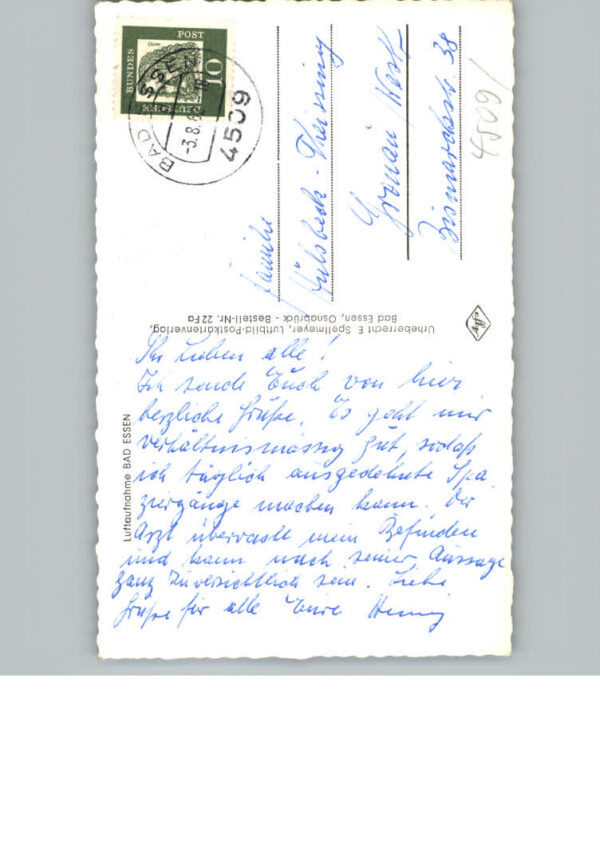 Dürer
BUNDES POST
10
DEUTSCHE
BAD ESSEN
-3.8.6
4509
Familie
Hülsbeck-
Gronau/Westf.
Bismarckstr. 38
4509/
Urheberrecht E. Spellmeyer, Luftbild-Postkartenverlag,
Bad Essen, Osnabrück - Bestell-Nr. 22 Fa
Luftaufnahme BAD ESSEN
Ihr Lieben alle!
Ich sende Euch von hier
herzliche Grüße. Es geht mir
verhältnismässig gut, sodaß
ich täglich ausgedehnte Spa-
ziergänge machen kann. Der
Arzt überwacht mein Befinden
und kann nach seiner Aussage
ganz zuversichtlich sein. Liebe
Grüße für alle Eure